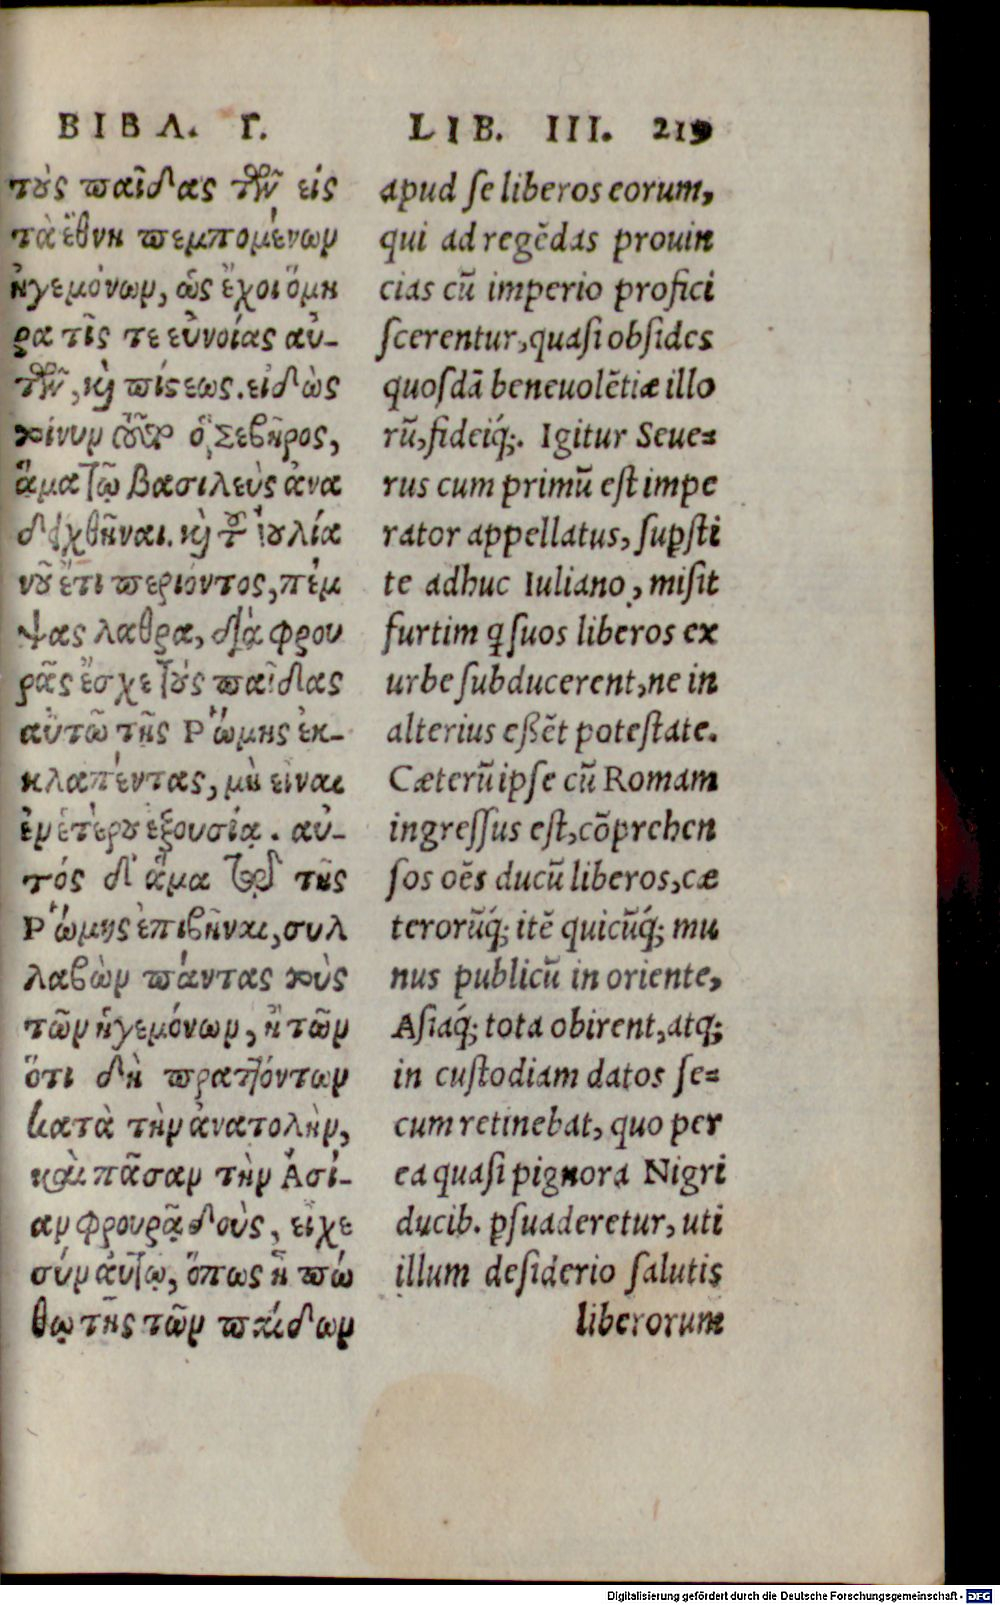 ΒΙΒΛ. Γ.
τοὺς παῖδας τῶν εἰς
τὰ ἔθνη πεμπομένων
ἡγεμόνων, ὡς ἔχοι ὅμη
ρα τῆς τε εὐνοίας αὐ-
τῶν, καὶ πίστεως. εἰδὼς
ἅμα τῷ βασιλεὺς ἀνα
δειχθῆναι. καὶ τοῦ Ἰουλία
νοῦ ἔτι περιόντος, πέμ
ψας λαθρα, διὰ φρου
ρᾶς ἔσχε τοὺς παῖδας
αὐτῶ τῆς Ῥώμης ἐκ-
κλαπέντας, μὴ εἶναι
ἐν ἑτέρου ἐξουσίᾳ. αὐ-
τός δ' ἅμα τῆς
Ῥώμης ἐπιβῆναι, συλ
λαβὼν πάντας τοὺς
τῶν ἡγεμόνων, ἢ τῶν
ὅτι δὴ πραττόντων
κατὰ τὴν ἀνατολὴν,
καὶ πᾶσαν τὴν Ἀσί-
αν φρουρᾷ δοὺς, εἶχε
σύν αὑτῷ, ὅπως ἢ πό
θῳ τῆς τῶν παίδων
LIB. III. 219
apud se liberos eorum,
qui ad regẽdas prouin
cias cũ imperio profici
scerentur, quasi obsides
quosdã beneuolẽtiæ illo
rũ, fideiq́;. Igitur Seue=
rus cum primũ est impe
rator appellatus, suꝑsti
te adhuc Iuliano, misit
furtim q̃ suos liberos ex
urbe subducerent, ne in
alterius eßẽt potestate.
Cæterũ ipse cũ Romam
ingressus est, cõprehen
sos oẽs ducũ liberos, cæ
terorũq́; itẽ quicũq́; mu
nus publicũ in oriente,
Asiaq́; tota obirent, atq;
in custodiam datos se=
cum retinebat, quo per
ea quasi pignora Nigri
ducib. ꝑsuaderetur, uti
illum desiderio salutis
liberorum
Digitalisierung gefördert durch die Deutsche Forschungsgemeinschaft - DFG